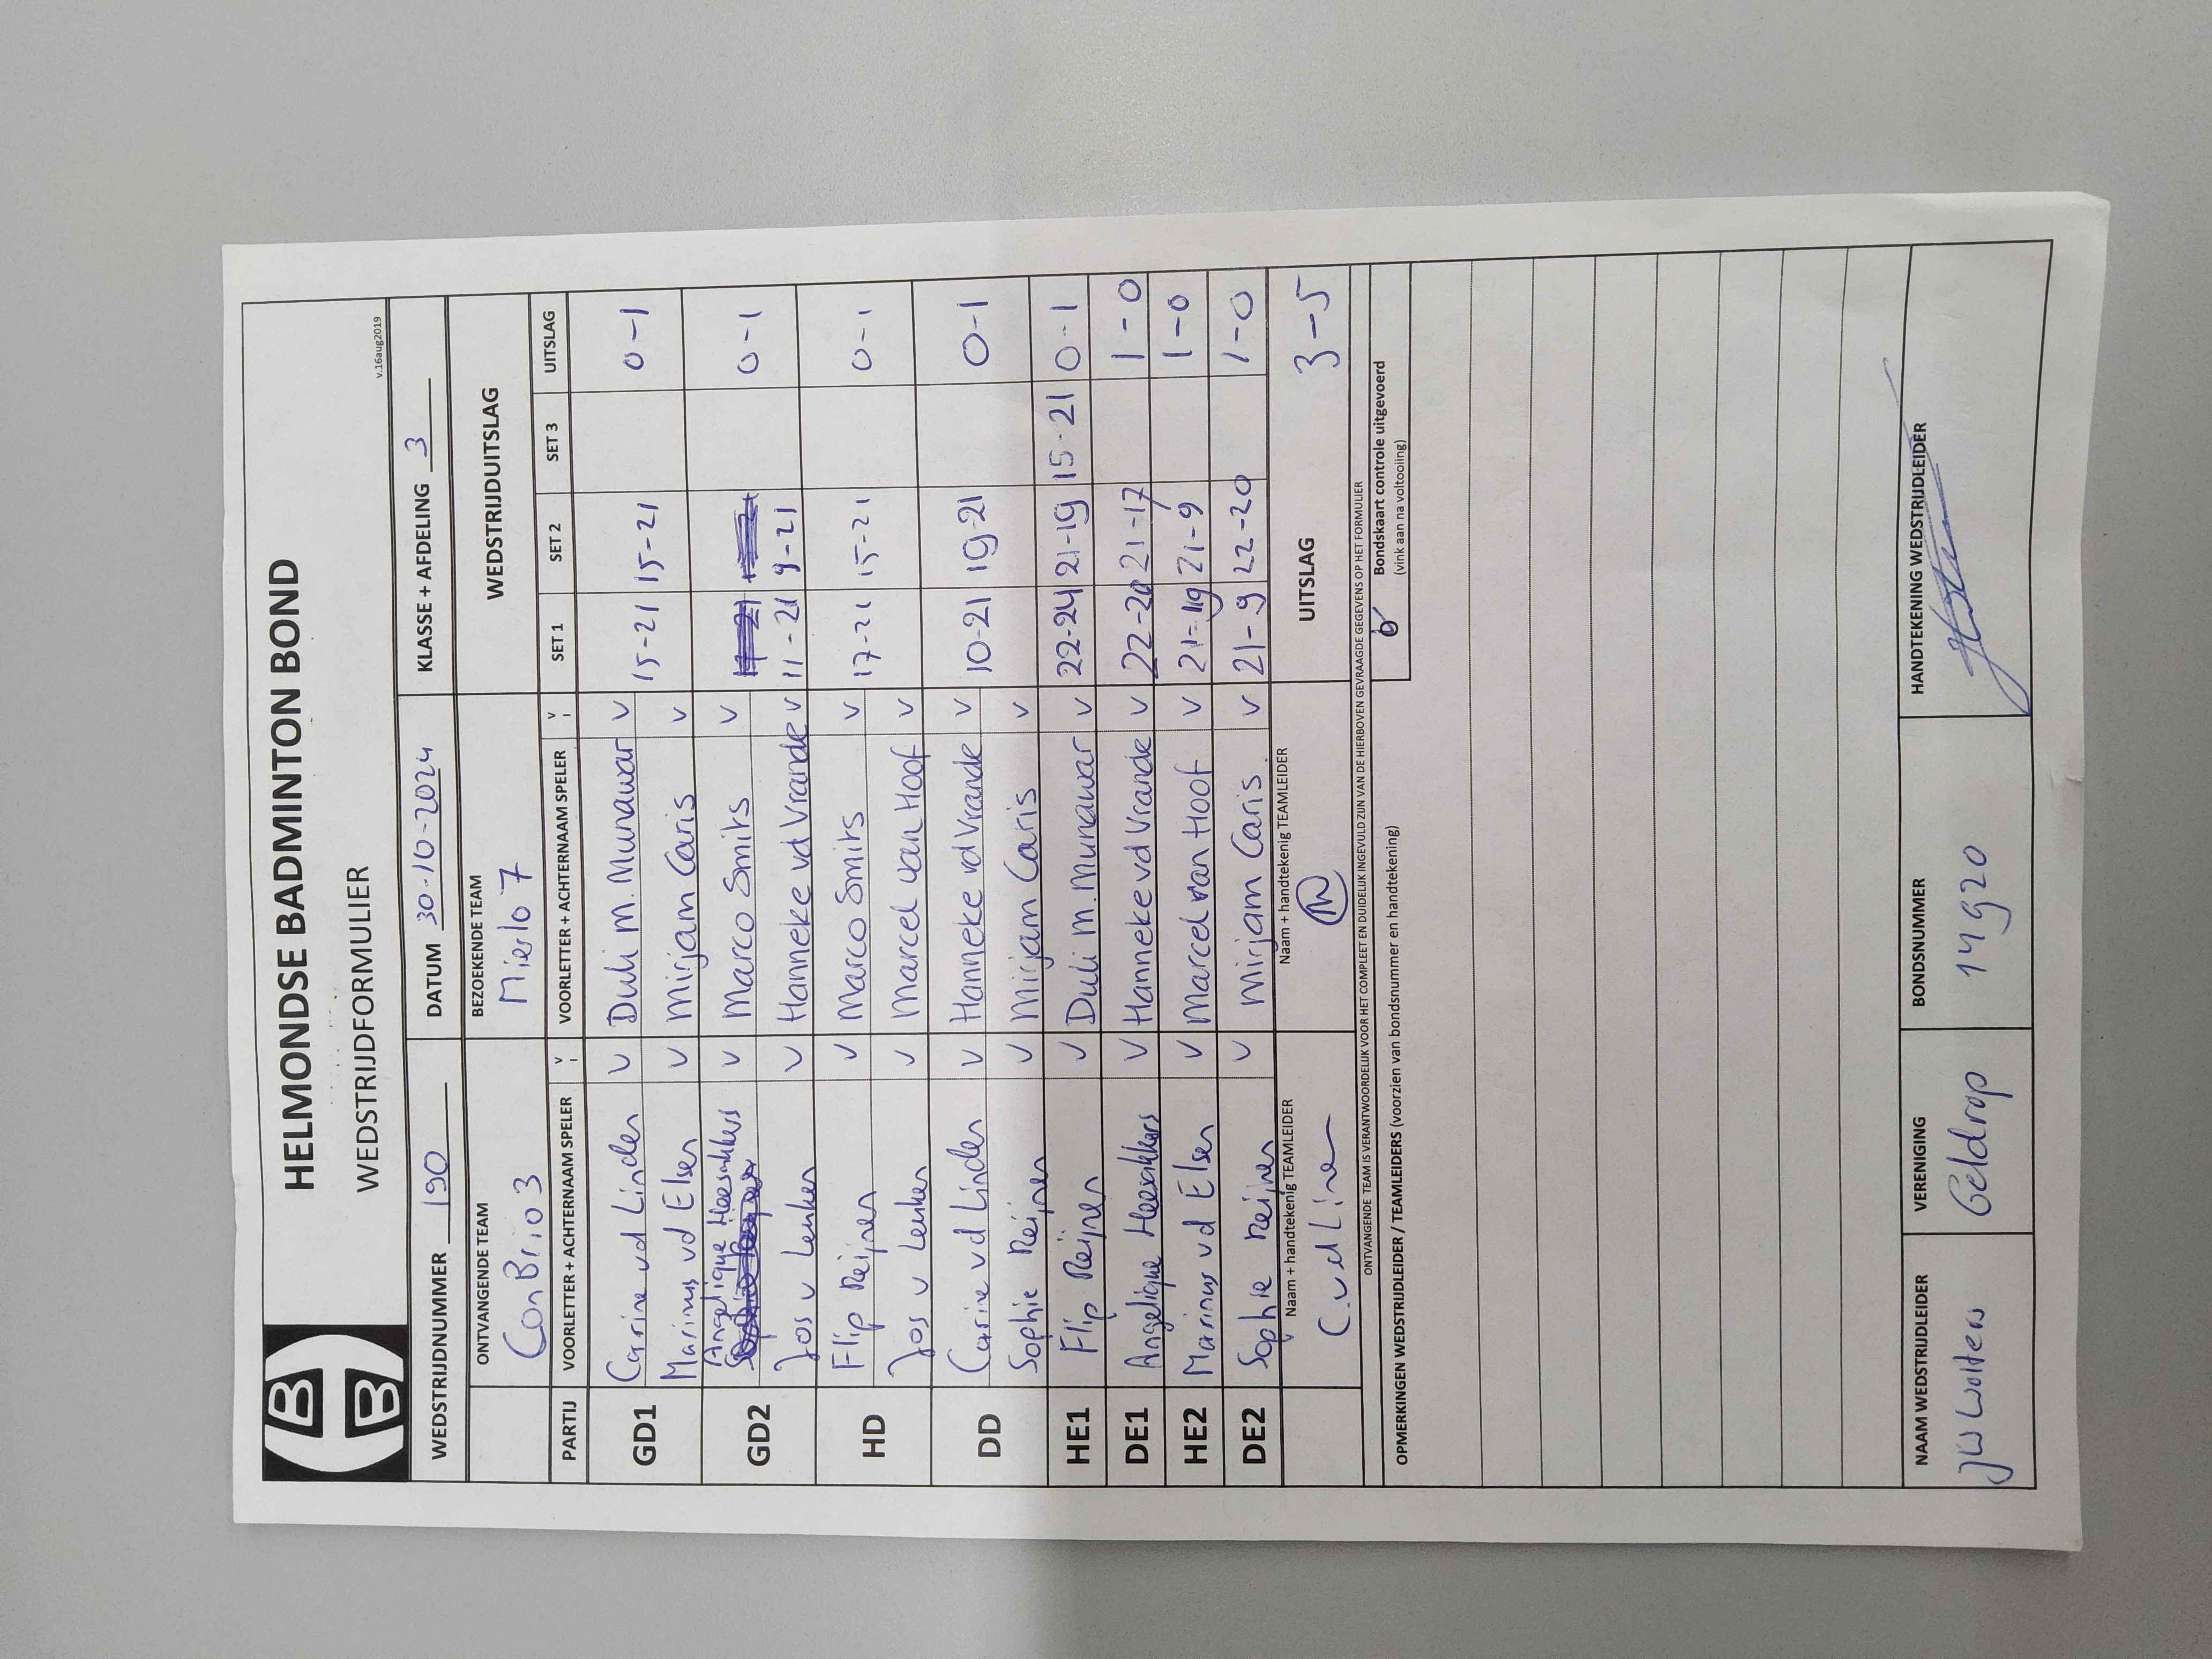 HELMONDSE BADMINTON BOND
WEDSTRIJDFORMULIER
v.16aug2019
HBB
WEDSTRIJDNUMMER 190 DATUM 30-10-2024 KLASSE + AFDELING 3
ONTVANGENDE TEAM BEZOEKENDE TEAM WEDSTRIJDUITSLAG
ConBrio 3 Mierlo 7
PARTIJ VOORLETTER + ACHTERNAAM SPELER v VOORLETTER + ACHTERNAAM SPELER v SET 1 SET 2 SET 3 UITSLAG
GD1 Carine vd Linden v Duli M. Munawar v 15-21 15-21 0-1
Marinus vd Elsen v Mirjam Caris v
GD2 Angelique Heesakkers v Marco Smits v
Jos v Lenken v Hanneke vd Vrande v 11-21 9-21 0-1
HD Flip Reijnen v Marco Smits v 17-21 15-21 0-1
Jos v Lenken v Marcel van Hoof v
DD Carine vd Linden v Hanneke vd Vrande v 10-21 19-21 0-1
Sophie Reijnen v Mirjam Caris v
HE1 Flip Reijnen v Duli M. Munawar v 22-24 21-19 15-21 0-1
DE1 Angelique Heesakkers v Hanneke vd Vrande v 22-20 21-17 1-0
HE2 Marinus vd Elsen v Marcel van Hoof v 21-19 21-9 1-0
DE2 Sophie Reijnen v Mirjam Caris v 21-9 22-20 1-0
Naam + handtekenig TEAMLEIDER Naam + handtekenig TEAMLEIDER UITSLAG 3-5
C. vd Line
ONTVANGENDE TEAM IS VERANTWOORDELIJK VOOR HET COMPLEET EN DUIDELIJK INGEVULD ZIJN VAN DE HIERBOVEN GEVRAAGDE GEGEVENS OP HET FORMULIER
Bondskaart controle uitgevoerd
(vink aan na voltooiing)
OPMERKINGEN WEDSTRIJDLEIDER / TEAMLEIDERS (voorzien van bondsnummer en handtekening)
NAAM WEDSTRIJDLEIDER VERENIGING BONDSNUMMER HANDTEKENING WEDSTRIJDLEIDER
JW Wolters Geldrop 14920